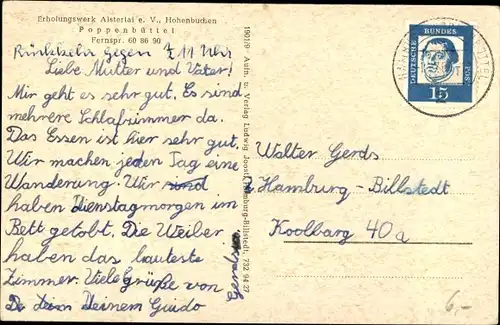 Erholungswerk Alstertal e. V., Hohenbuchen
Poppenbüttel
Fernspr. 60 86 90
gegen 11 Uhr
Liebe Mutter und Vater!
Mir geht es sehr gut. Es sind
mehrere Schlafzimmer da.
Das Essen ist hier sehr gut.
Wir machen jeden Tag eine
Wanderung. Wir sind
haben Dienstagmorgen im
Bett getobt. Die Weiber
haben das lauteste
Zimmer. Viele Grüße von
Deinem Guido
1901/9 Aufn. u. Verlag Ludwig Joost, Hamburg-Billstedt, 732 94 27
DEUTSCHE BUNDESPOST
15
Walter Gerds
Hamburg-Billstedt
Koolbarg 40a
6,-